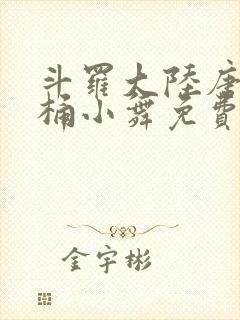 斗羅大陸唐
桶小舞免費
金宇彬